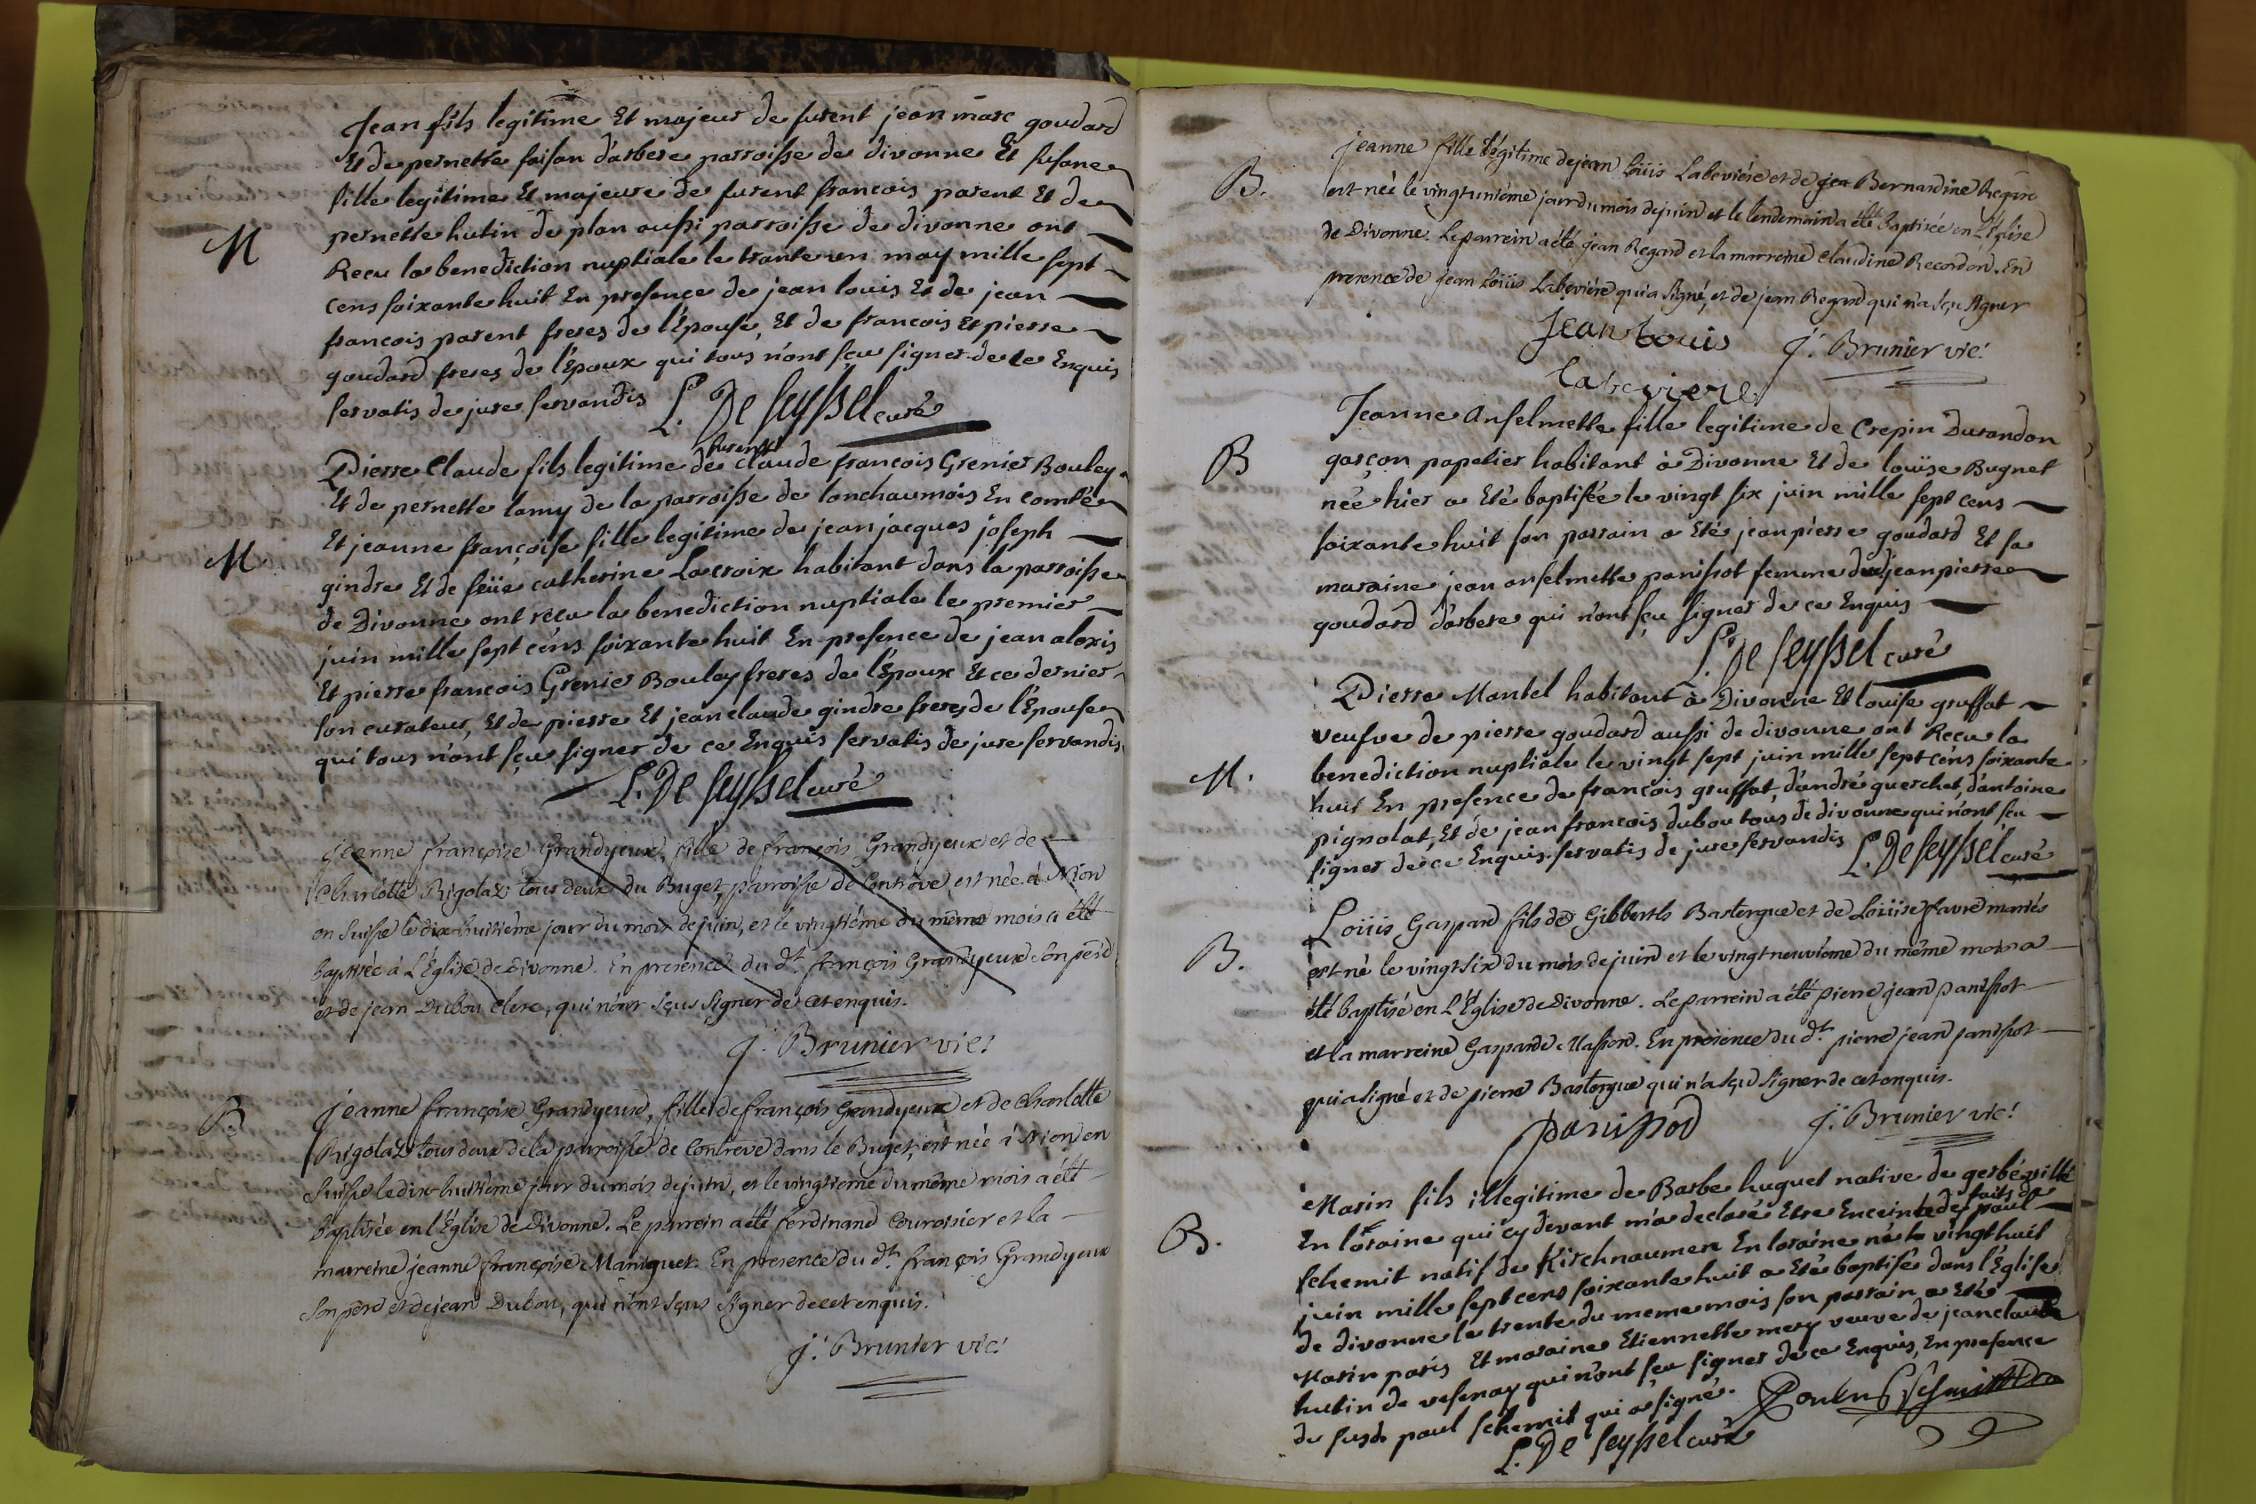 Jean fils legitime Et majeur de furent jean marc goudard
Et de pernette faisan d'arbere parroisse de divonne Et susane
fille legitime Et majeure de furent francois parent Et de
pernette hutin de plan aussi parroisse de divonne ont
M
Recu la benediction nuptiale le trante un may mille sept
cens soixante huit En presence de jean louis Et de jean
francois parent freres de l'Épouse, Et de francois Et pierre
goudard freres de l'Epoux qui tous n'ont sçu signer de ce Enquis
servatis de jure servandis L. De Seyssel curé
furent
Pierre Claude fils legitime de claude francois Grenier Bouley
Et de pernette lamy de la parroisse de lonchaumois En comté
Et jeanne françoise fille legitime de jean jacques joseph
M
gindre Et de feüe catherine Lacroix habitant dans la parroisse
de Divonne ont recu la benediction nuptiale le premier
juin mille sept céns soixante huit En presence de jean alexis
Et pierre francois Grenier Bouley freres de l'Epoux Et ce dernier
son curateur, Et de pierre Et jean claude gindre freres de l'Epouse
qui tous n'ont sçu signer de ce Enquis servatis de jure servandis
L. De Seyssel curé
Jeanne françoise Grandyeux, fille de françois Grandyeux et de
Charlotte Rigolaz tous deux du Buget, parroisse de Controve, est née à Nion
en Suisse le dix-huitième jour du mois de juin, et le vingtième du même mois a été
baptisée à L'Église de Divonne. En presence du dt. françois Grandyeux son père
et de jean Dubou clerc, qui n'ont sçus signer de cet enquis.
J. Brunier vic.
B.
Jeanne françoise Grandyeux, fille de françois Grandyeux et de Charlotte
Rigolaz tous deux de la parroisse de Contreve dans le Buget, est née à Nion en
Suisse le dix-huitième jour du mois de juin, et le vingtième du même mois a été
baptisée en l'Église de Divonne. Le parrein a été ferdinand Couroisier et la
marreine jeanne françoise Maniguet. En presence du dt. françois Grandyeux
son père et de jean Dubou, qui n'ont sçus signer de cet enquis.
J. Brunier vic.
Jeanne fille légitime de jean Loüis Labevière et de Bernardine Regard
B.
est née le vingt unième jour du mois de juin et le lendemain a été baptisée en L'Église
de Divonne. Le parrein a été jean Regard et la marreine Claudine Recordon. En
presence de jean Loüis Labevière qui a signé, et de jean Regard qui n'a sçu signer
Jean Louis J. Brunier vic.
Labeviere
Jeanne Anselmette fille legitime de Crepin Durandon
B
garçon papetier habitant à Divonne Et de loüise Bugnet
née hier a Eté baptisée le vingt six juin mille sept cens
soixante huit son parrain a Eté jean pierre goudard Et sa
maraine jean anselmette panissot femme dudjean pierre
goudard d'arbere qui n'ont sçu signer de ce Enquis
L. De Seyssel curé
Pierre Mantel habitant à Divonne Et louise gruffat
veufve de pierre goudard aussi de divonne ont Recu la
M.
benediction nuptiale le vingt sept juin mille sept céns soixante
huit En presence de francois gruffat, d'andré querchet, d'antoine
pignolat, Et de jean francois dubou tous de divonne qui n'ont sçu
signer de ce Enquis servatis de jure servandis L. De Seyssel curé
Loüis Gaspard fils de Gibberts Bastergue et de Loüise favre mariés
B.
est né le vingt six du mois de juin et le vingt neuvième du même mois a
été baptisé en L'Église de Divonne. Le parrein a été pierre jean panissot
et la marreine Gasparde Masson. En presence du dt. pierre jean panissot
qui a signé et de pierre Bastergue qui n'a sçu signer de cet enquis.
panissod J. Brunier vic.
Marin fils illegitime de Barbe huguet native de gerbéville
faits de
B.
En loraine qui cy devant m'a declaré Etre Enceinte des paul
schemit natif de Kirchnaumen En loraine né le vingt huit
juin mille sept cens soixante huit a Eté baptisé dans l'Église
de divonne le trente du meme mois son parrain a Eté
Marin paris Et maraine Etiennette mery veuve de jean claude
hutin de vesenay qui n'ont sçu signer de ce Enquis, En presence
de susd. paul schemit qui a signé. Paulus Schmitt
L. De Seyssel curé